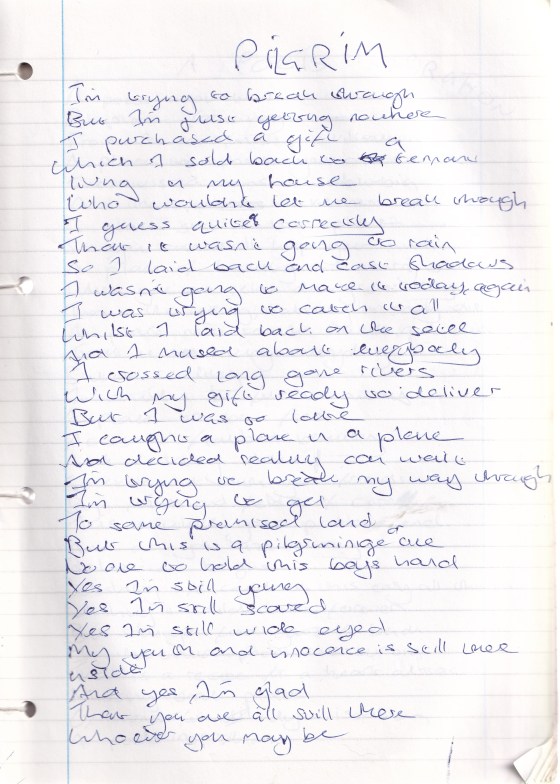 PILGRIM
I'm trying to break through
But I'm just getting nowhere
I purchased a gift
Which I sold back to a tennant
living in my house
Who wouldn't let me break through
I guess quite correctly
That it wasn't going to rain
So I laid back and cast shadows
I wasn't going to make it today again
I was trying to catch it all
Whilst I laid back on the
And I mused about everybody
I crossed long gone rivers
With my gift ready to deliver
But I was to late
I caught a plane in a plane
And decided reality can wait
I'm trying to break my way through
I'm trying to get
To some promised land
But this is a pilgriminge of one
No one to hold this boys hand
Yes I'm still young
Yes I'm still scared
Yes I'm still wide eyed
My youth and innocence is still there
inside
And yes, I'm glad
That you are all still there
Whoever you may be